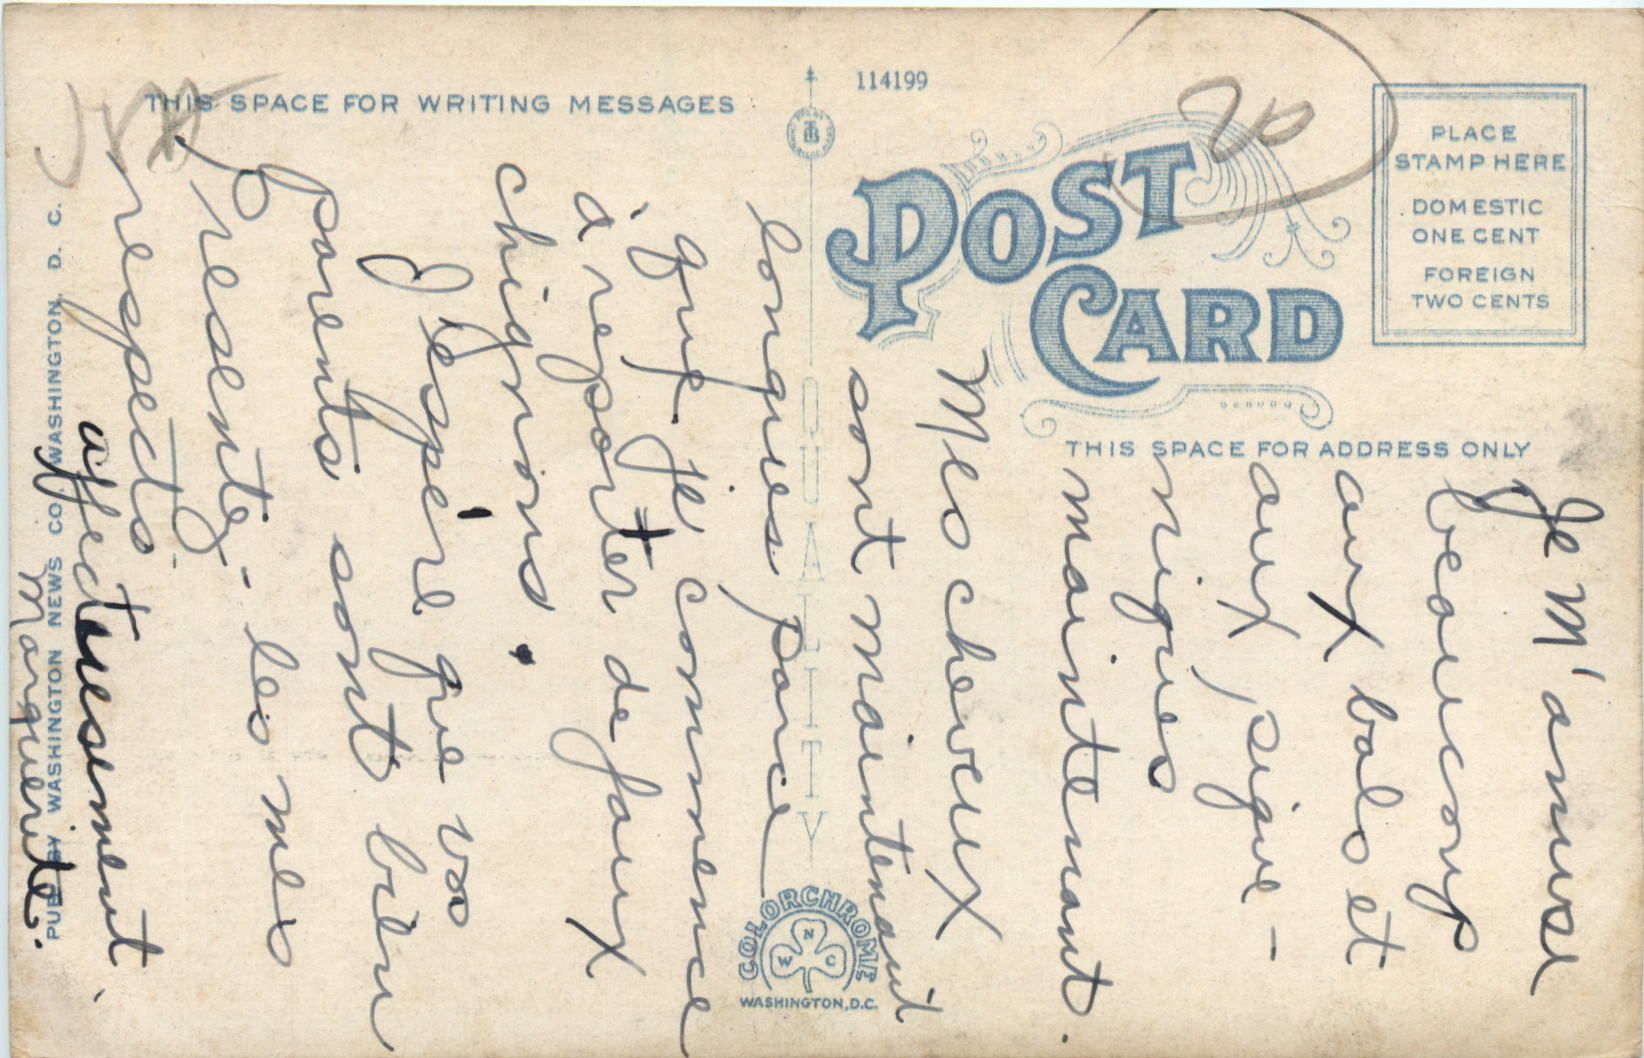 THIS SPACE FOR WRITING MESSAGES
114199
POST
CARD
PLACE
STAMP HERE
DOMESTIC
ONE CENT
FOREIGN
TWO CENTS
THIS SPACE FOR ADDRESS ONLY
QUALITY
COLORCHROME
W N C
WASHINGTON, D.C.
PUB. BY WASHINGTON NEWS CO. WASHINGTON, D. C.
20
Je M'amuse
beaucoup
aux bals et
aux pique-
niques
maintenant.
Mes cheveux
sont maintenant
longues parce
que je commence
à reporter de faux
chignons.
J'espère que vos
parents sont bien
Presentez-les mes
respects.
affectuesement.
Marguerite.